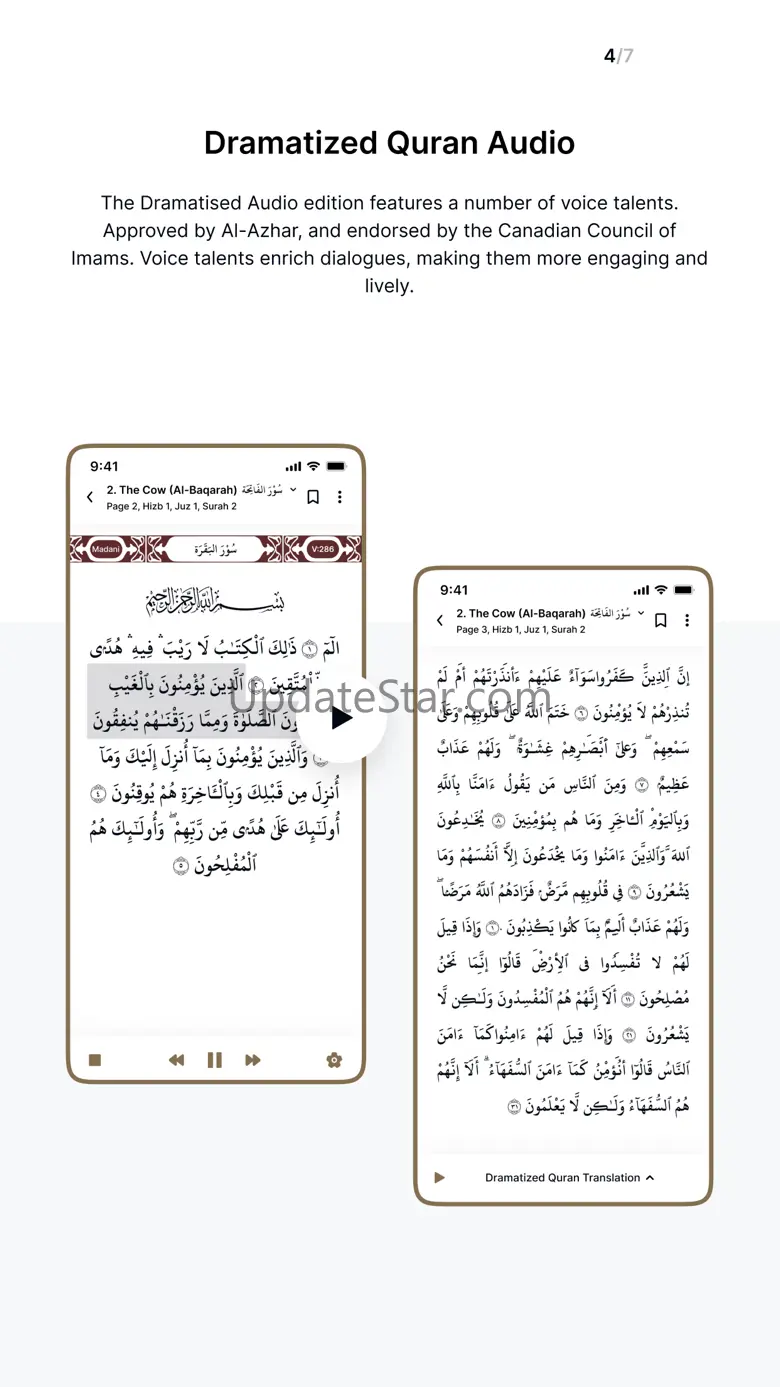 4/7
Dramatized Quran Audio
The Dramatised Audio edition features a number of voice talents.
Approved by Al-Azhar, and endorsed by the Canadian Council of
Imams. Voice talents enrich dialogues, making them more engaging and
lively.
9:41
2. The Cow (Al-Baqarah) سُوْرَ الفَاتِحَة
Page 2, Hizb 1, Juz 1, Surah 2
Madani
سُوْرَ البَقَرَة
V:286
بِسْمِ ٱللَّهِ ٱلرَّحْمَٰنِ ٱلرَّحِيمِ
الٓمٓ ١ ذَٰلِكَ ٱلْكِتَٰبُ لَا رَيْبَ ۛ فِيهِ ۛ هُدًى
ٱلَّذِينَ يُؤْمِنُونَ بِٱلْغَيْبِ
ٱلصَّلَوٰةَ وَمِمَّا رَزَقْنَٰهُمْ يُنفِقُونَ
وَٱلَّذِينَ يُؤْمِنُونَ بِمَآ أُنزِلَ إِلَيْكَ وَمَآ
أُنزِلَ مِن قَبْلِكَ وَبِٱلْـَٔاخِرَةِ هُمْ يُوقِنُونَ ٤
أُو۟لَـٰٓئِكَ عَلَىٰ هُدًى مِّن رَّبِّهِمْ ۖ وَأُو۟لَـٰٓئِكَ هُمُ
ٱلْمُفْلِحُونَ ٥
9:41
2. The Cow (Al-Baqarah) سُوْرَ الفَاتِحَة
Page 3, Hizb 1, Juz 1, Surah 2
إِنَّ ٱلَّذِينَ كَفَرُواسَوَآءٌ عَلَيْهِمْ ءَأَنذَرْتَهُمْ أَمْ لَمْ
تُنذِرْهُمْ لَا يُؤْمِنُونَ ٦ خَتَمَ ٱللَّهُ عَلَىٰ قُلُوبِهِمْ وَعَلَىٰ
سَمْعِهِمْ ۖ وَعَلَىٰٓ أَبْصَٰرِهِمْ غِشَٰوَةٌ ۖ وَلَهُمْ عَذَابٌ
عَظِيمٌ ٧ وَمِنَ ٱلنَّاسِ مَن يَقُولُ ءَامَنَّا بِٱللَّهِ
وَبِٱلْيَوْمِ ٱلْـَٔاخِرِ وَمَا هُم بِمُؤْمِنِينَ ٨ يُخَٰدِعُونَ
ٱللهَ وَٱلَّذِينَ ءَامَنُوا وَمَا يَخْدَعُونَ إِلَّآ أَنفُسَهُمْ وَمَا
يَشْعُرُونَ ٩ فِى قُلُوبِهِم مَّرَضٌ فَزَادَهُمُ ٱللَّهُ مَرَضًا ۖ
وَلَهُمْ عَذَابٌ أَلِيمٌ بِمَا كَانُوا يَكْذِبُونَ ٠١ وَإِذَا قِيلَ
لَهُمْ لَا تُفْسِدُوا فِى ٱلْأَرْضِ قَالُوٓا إِنَّمَا نَحْنُ
مُصْلِحُونَ ١١ أَلَآ إِنَّهُمْ هُمُ ٱلْمُفْسِدُونَ وَلَٰكِن لَّا
يَشْعُرُونَ ٢١ وَإِذَا قِيلَ لَهُمْ ءَامِنُواكَمَآ ءَامَنَ
ٱلنَّاسُ قَالُوٓا أَنُؤْمِنُ كَمَآ ءَامَنَ ٱلسُّفَهَآءُ ۗ أَلَآ إِنَّهُمْ
هُمُ ٱلسُّفَهَآءُ وَلَٰكِن لَّا يَعْلَمُونَ ٣١
Dramatized Quran Translation
UpdateStar.com